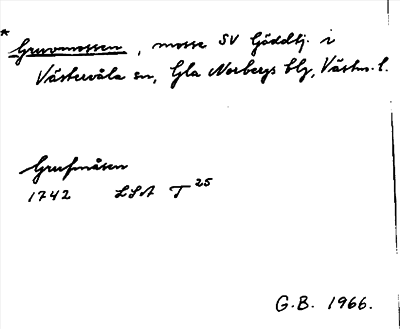 * Gruvmossen, mosse SV Gäddtj. i
Västervåla sn, Gla Norbergs blg, Västm. l.
Grufmåsen
1742 LSA T 25
G.B. 1966.